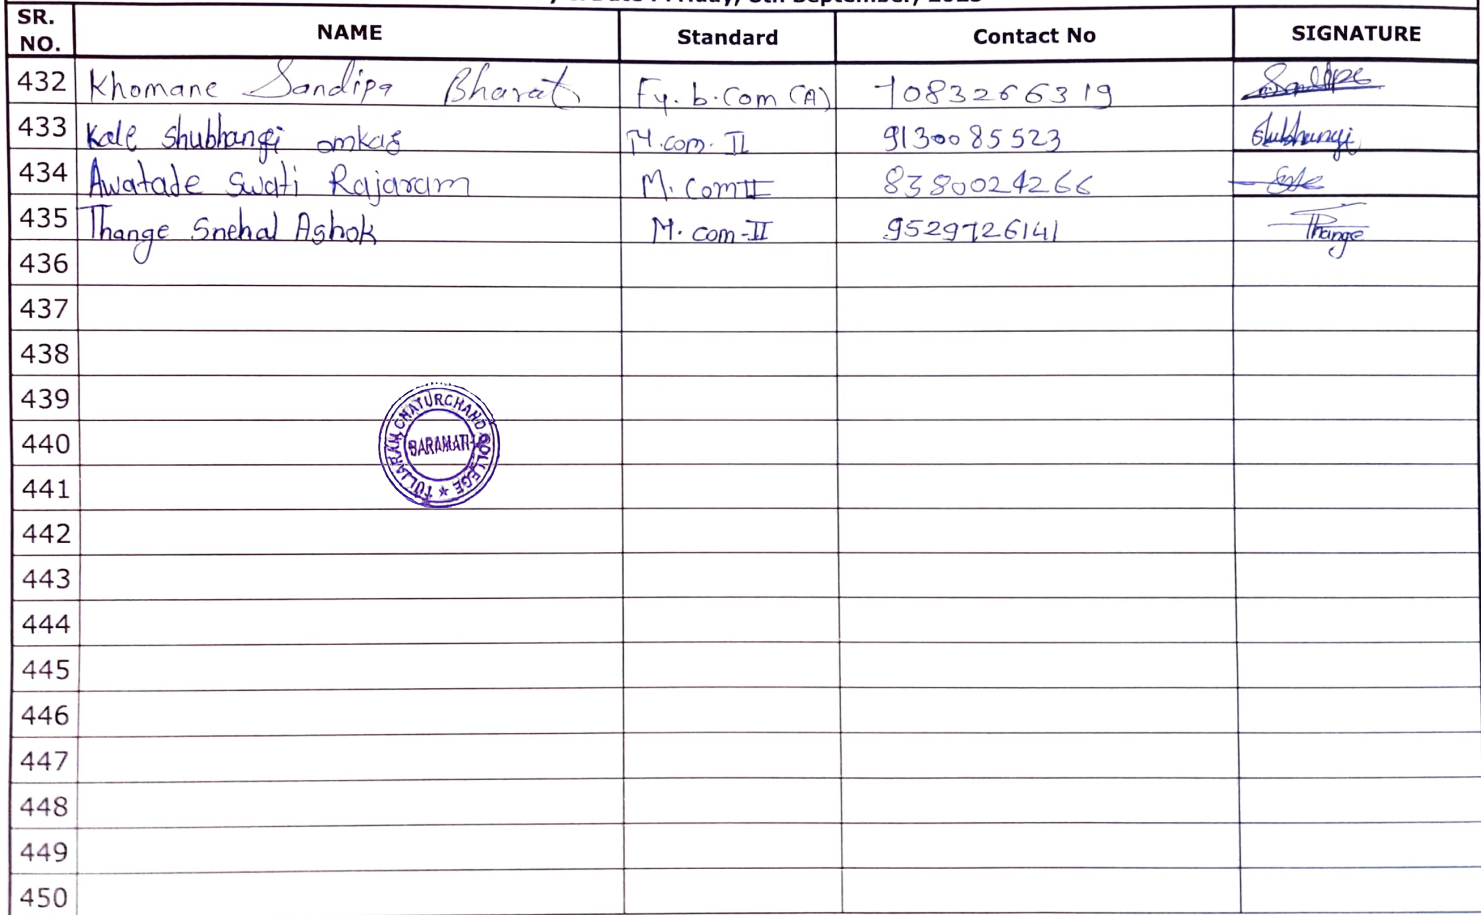 SR. NO. NAME Standard Contact No SIGNATURE
432 Khomane Sandipa Bharat Fy. b. Com (A) 7083266319 Sandipa
433 Kale shubhangi omkar M. com. II 9130085523 Shubhangi
434 Awatade Swati Rajaram M. Com II 8380024266
435 Thange Snehal Ashok M. com-II 9529726141 Thange
436
437
438
439
440
441
442
443
444
445
446
447
448
449
450
TULJARAM CHATURCHAND COLLEGE
BARAMATI